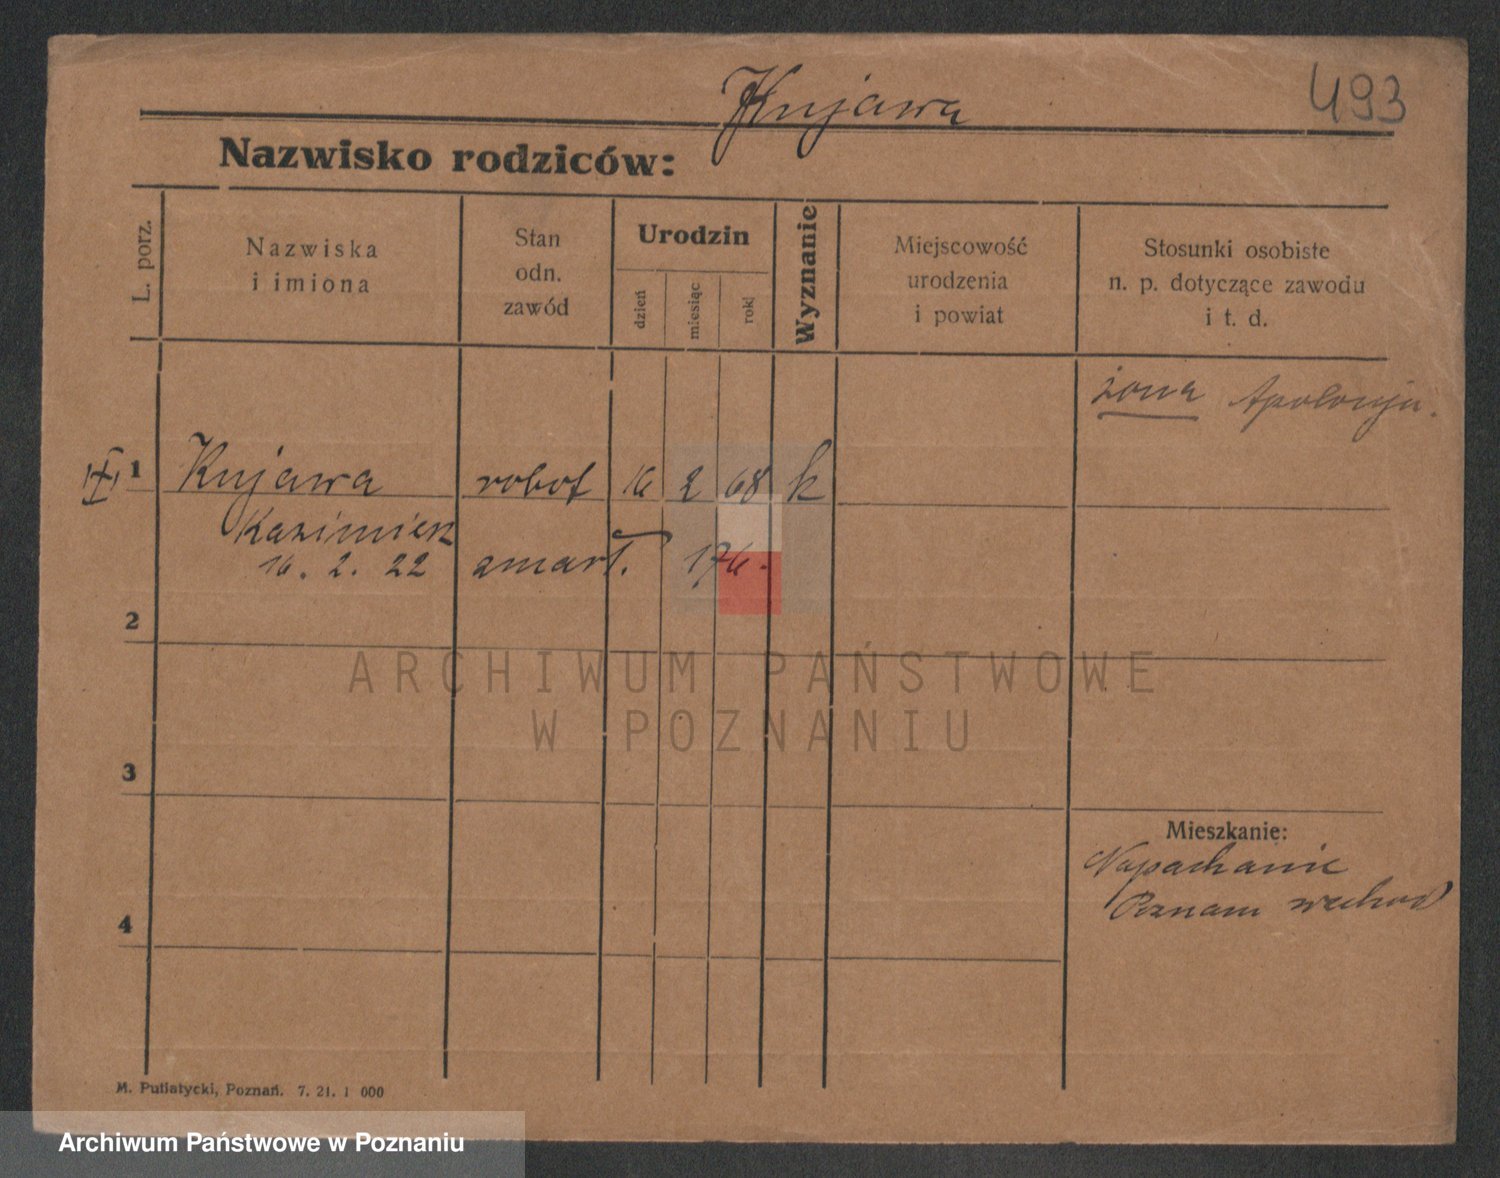 Kujawa
493
Nazwisko rodziców:
L. porz.
Nazwiska
i imiona
Stan
odn.
zawód
Urodzin
dzień
miesiąc
rok
Wyznanie
Miejscowość
urodzenia
i powiat
Stosunki osobiste
n. p. dotyczące zawodu
i t. d.
żona Apolonja.
1 Kujawa robot 16 2 68 k
Kazimierz
16. 2. 22 zmarł. 176.
2
ARCHIWUM PAŃSTWOWE
W POZNANIU
3
Mieszkanie:
Napachanie
Poznam wschod
4
M. Putiatycki, Poznań. 7. 21. 1 000
Archiwum Państwowe w Poznaniu